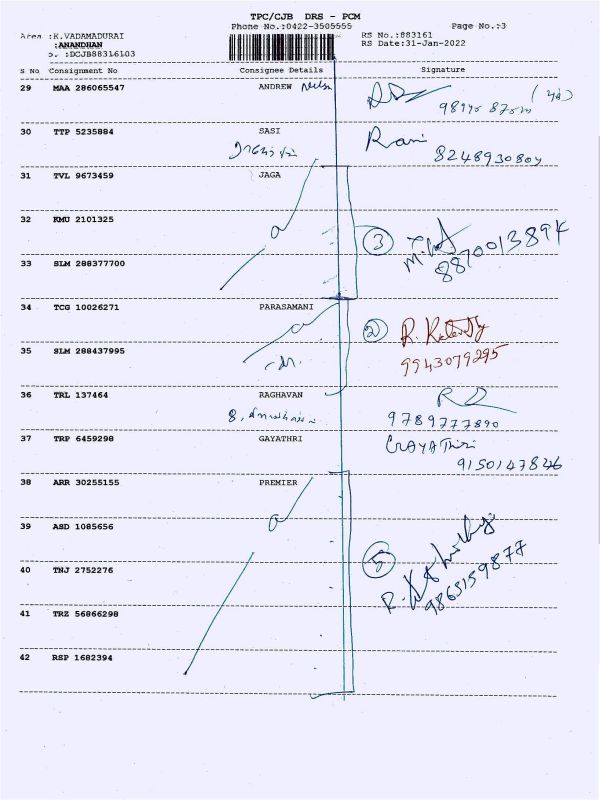 TPC/CJB DRS - PCM
Phone No.:0422-3505555 Page No.:3
Area :K.VADAMADURAI RS No.:883161
:ANANDHAN RS Date:31-Jan-2022
:DCJB88316103
S No Consignment No Consignee Details Signature
29 MAA 286065547 ANDREW
30 TTP 5235884 SASI Rani
8248930804
31 TVL 9673459 JAGA
32 KMU 2101325
3 8870013894
33 SLM 288377700
34 TCG 10026271 PARASAMANI
2
35 SLM 288437995
9943079295
36 TRL 137464 RAGHAVAN
9789777890
37 TRP 6459298 GAYATHRI GAYAThri
9150147826
38 ARR 30255155 PREMIER
39 ASD 1085656
40 TNJ 2752276 5
9865159877
41 TRZ 56866298
42 RSP 1682394